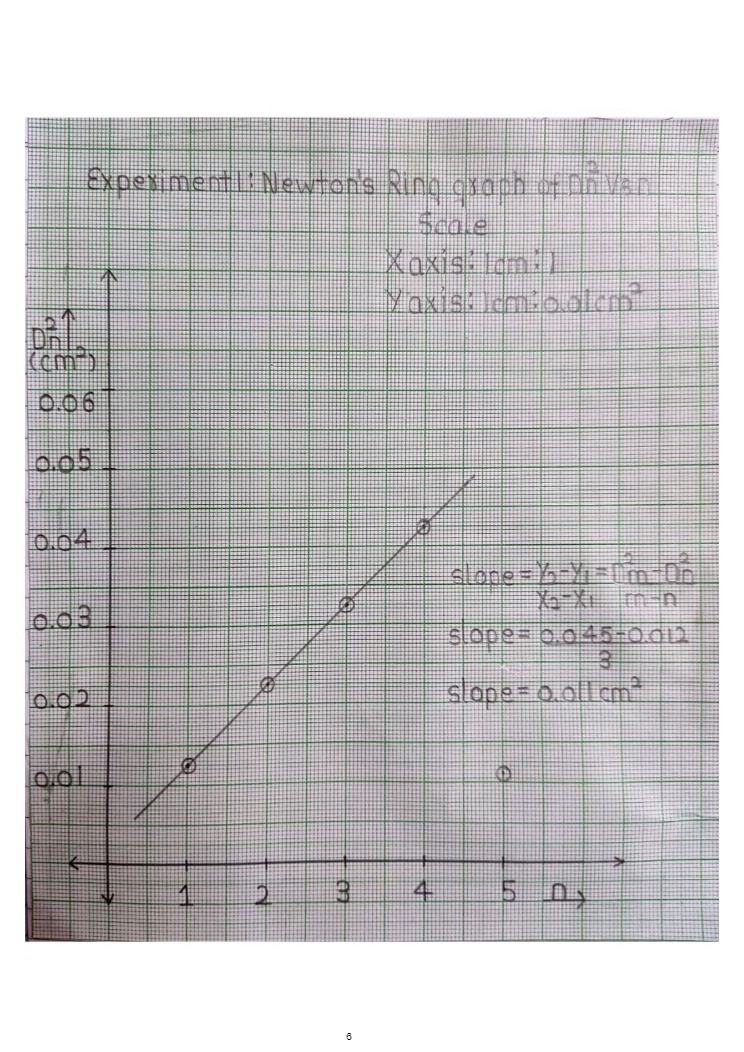 Experiment 1: Newton's Ring graph of Dn² Vs n
Scale
X axis: 1cm: 1
Y axis: 1cm: 0.01cm²
Dn²↑
(cm²)
0.06
0.05
0.04
slope = Y₂-Y₁ = D²m-Dn²
X₂-X₁ m-n
0.03
slope = 0.045-0.012
3
0.02
slope = 0.011cm²
0.01
1 2 3 4 5 n→
6